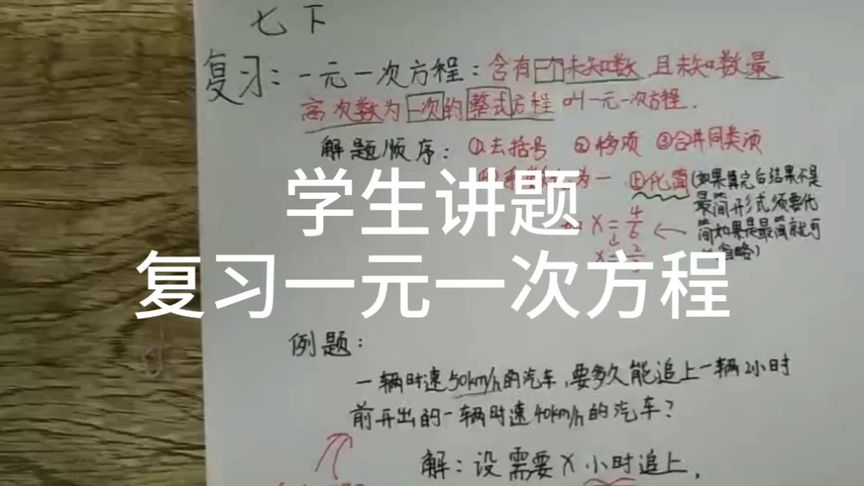 七下
复习：一元一次方程：含有一个未知数，且未知数最
高次数为一次的整式方程叫一元一次方程．
解题顺序：①去括号 ②移项 ③合并同类项
为一 ⑤化简（如果算完后结果不是
最简形式须要化
简如果是最简就可
省略）
x=4/6
学生讲题
复习一元一次方程
例题：
一辆时速50km/h的汽车，要多久能追上一辆2小时
前开出的一辆时速40km/h的汽车？
解：设需要x小时追上，